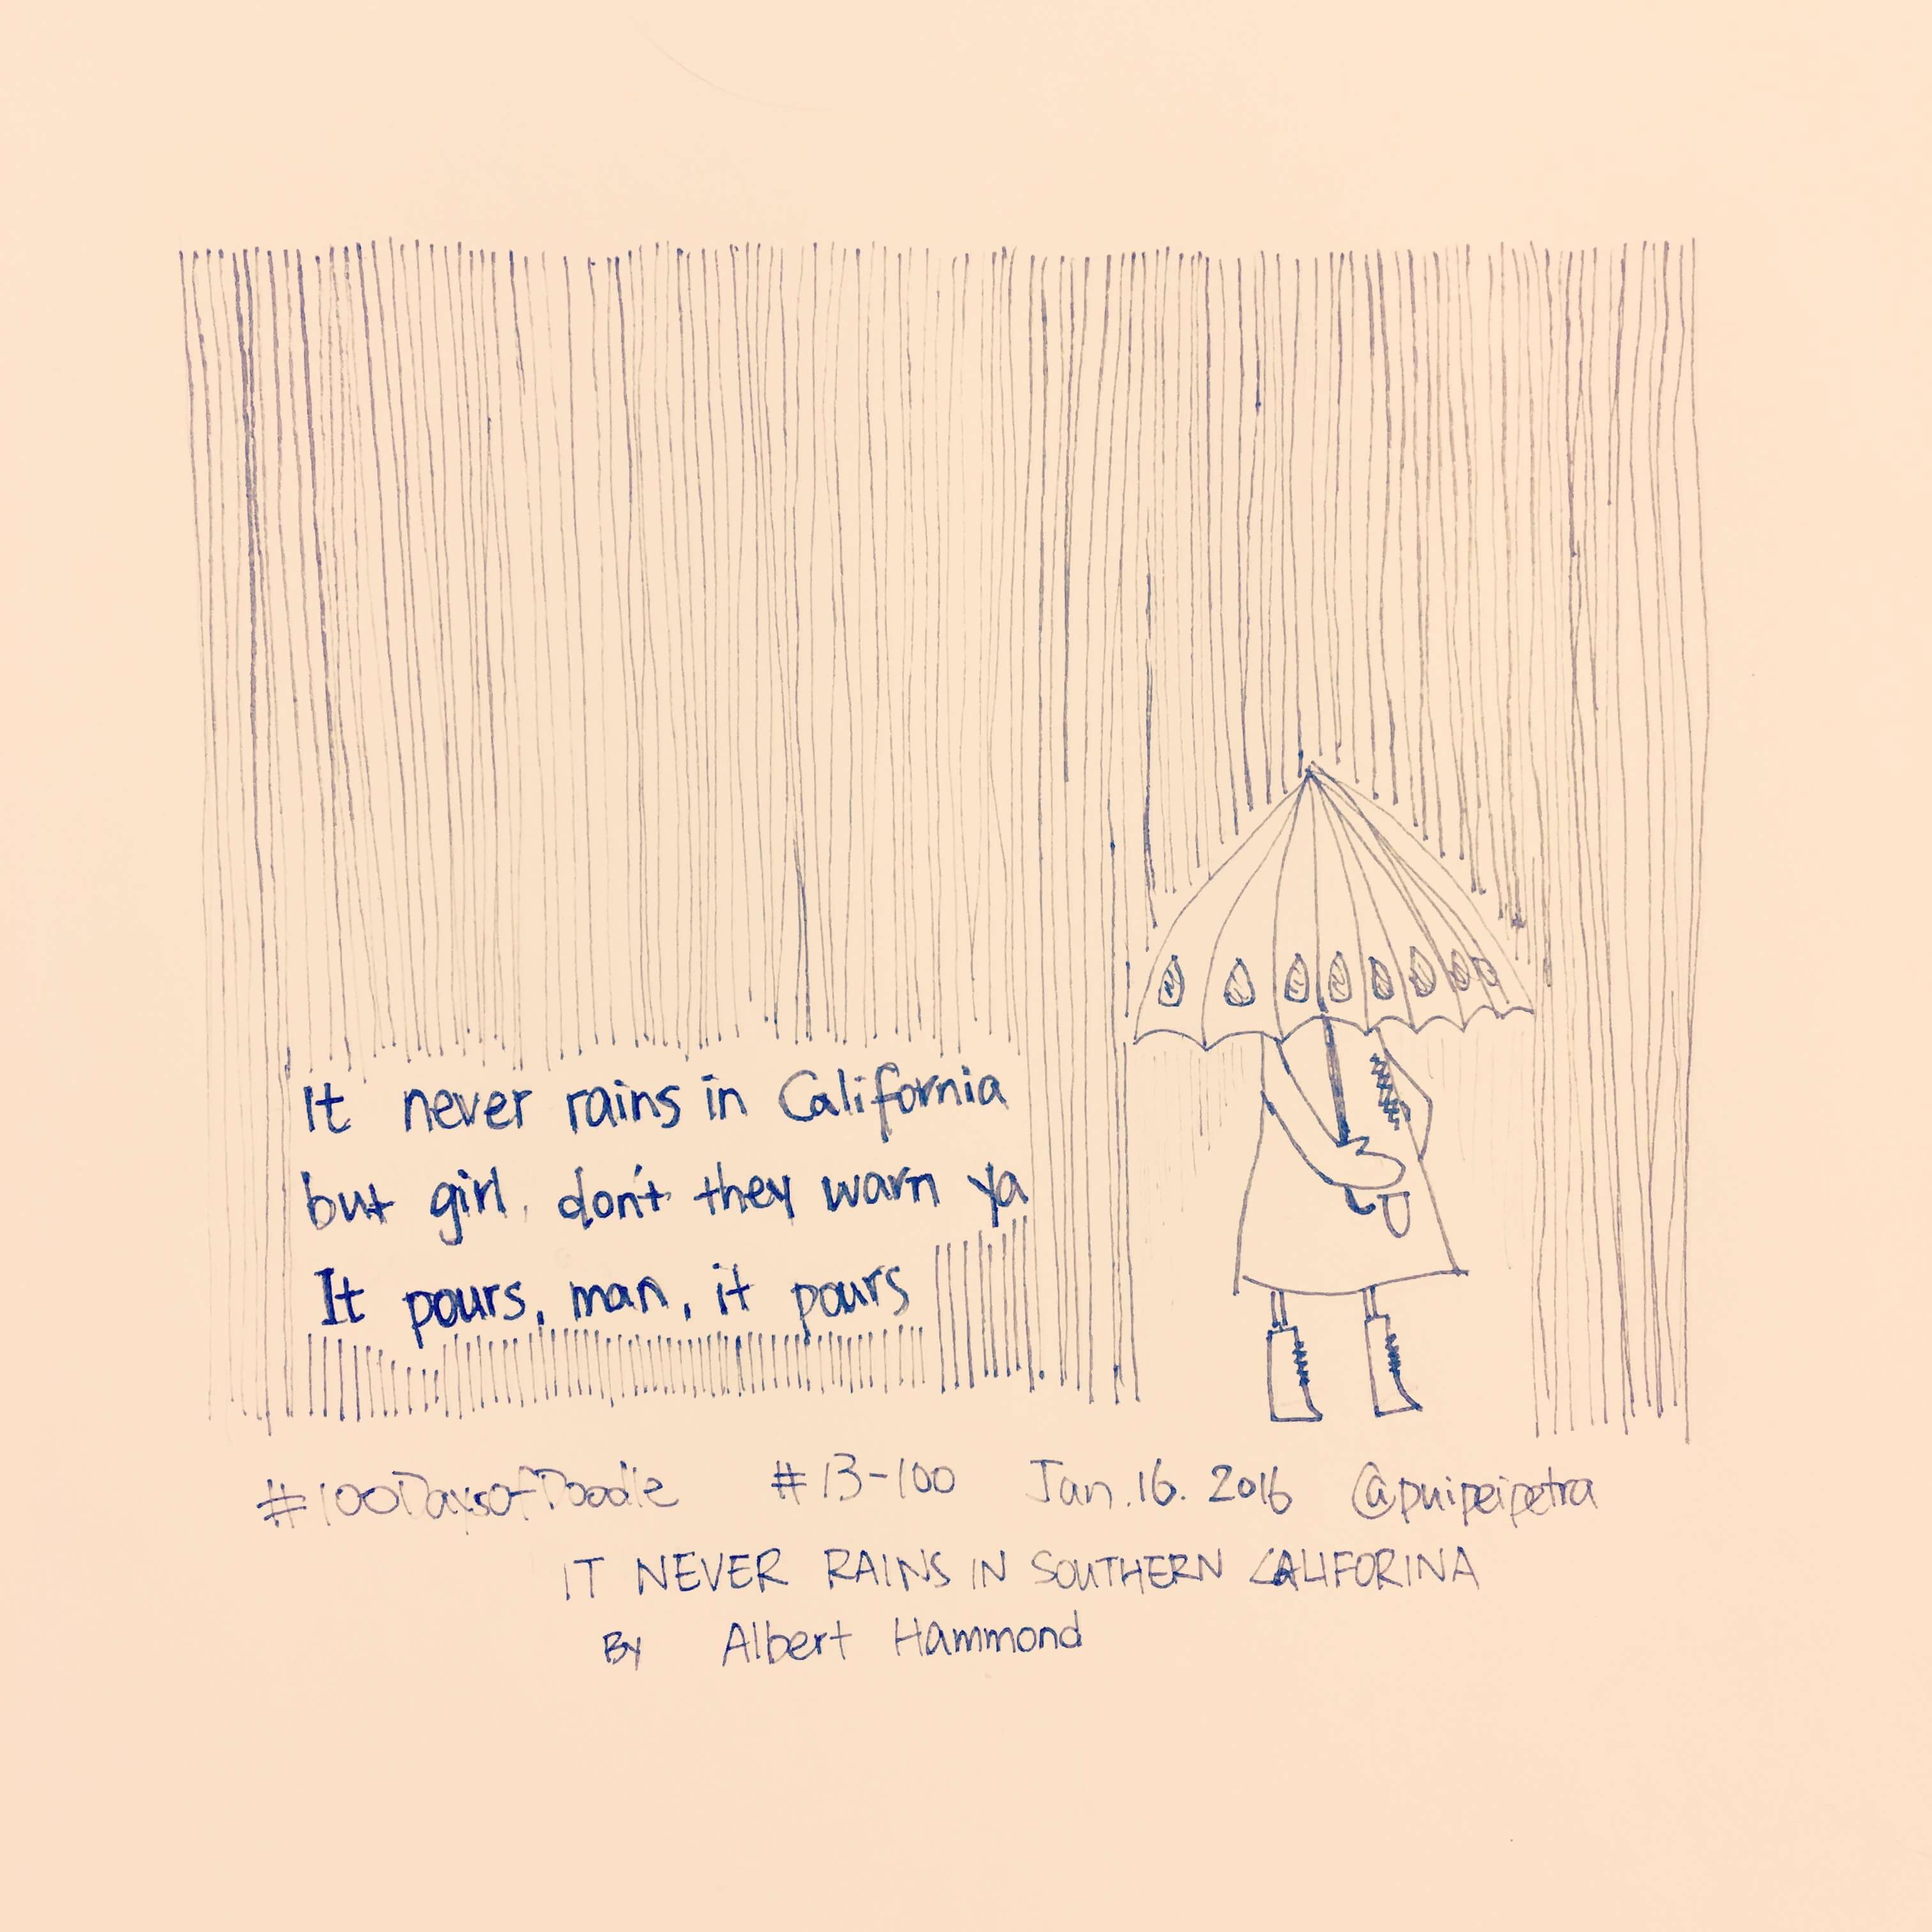 It never rains in California
but girl, don't they warn ya
It pours, man, it pours
#100DaysofDoodle #13-100 Jan.16. 2016 @puipeipetra
IT NEVER RAINS IN SOUTHERN CALIFORINA
By Albert Hammond